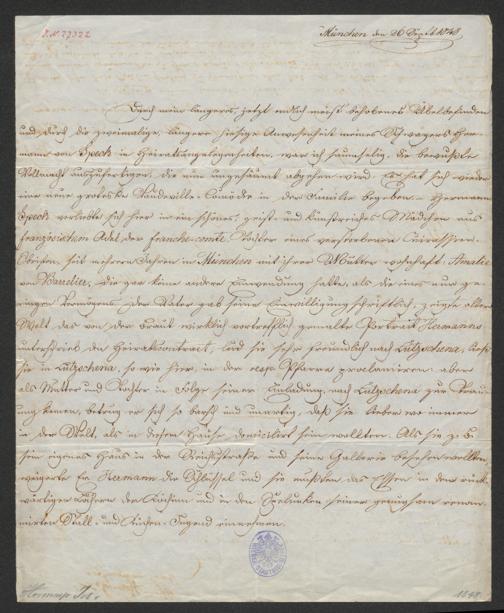 I.N. 79322
München den 26 Sept. 1848
Durch mein längeres, jetzt endlich meist behobenes Übelbefinden
und durch die zweimalige, längere hiesige Anwesenheit meines Schwagers Her-
mann von Speck in Heirathsangelegenheiten, war ich saumselig, die bewußte
Vollmacht auszufertigen, die nun ungesäumt abgehen wird. Es hat sich wieder
eine neue groteske Vaudeville-Comödie in der Familie begeben. Hermann
Speck verliebte sich hier in ein schönes, geist- und kunstreiches Mädchen aus
französischem Adel der Franche-comté, Tochter eines verstorbenen Cuirassier-
Obristen, seit mehren Jahren in München mit ihrer Mutter wohnhaft. Amalie
von Bourdier, die gar keine andere Einwendung hatte, als die eines nur ge-
ringen Vermögens. Der Vater gab seine Einwilligung schriftlich, zeigte aller
Welt das von der Braut wirklich vortrefflich gemalte Portrait Hermanns
unterschrieb den Heirathscontract, lud sie sehr freundlich nach Lützschena, ließ
sie in Lützschena, so wie hier, in der Pfarre proclamiren. aber
als Mutter und Tochter in Folge seiner Einladung, nach Lützschena zur Trau-
ung kamen, betrug er sich so barsch und unartig, daß sie lieber wo immer
in der Welt, als in diesem Hause, domicilirt sein wollten. Als sie z. B.
sein eigenes Haus in der Reichsstraße und seine Gallerie besehen wollten,
weigerte er Hermann die Schlüssel und sie mußten das Essen in den
der Küchen- und in den Spelunken seiner genugsam renom-
mirten Stall- und Küchen-Jugend einnehmen.
Hormayr Jos.
1848